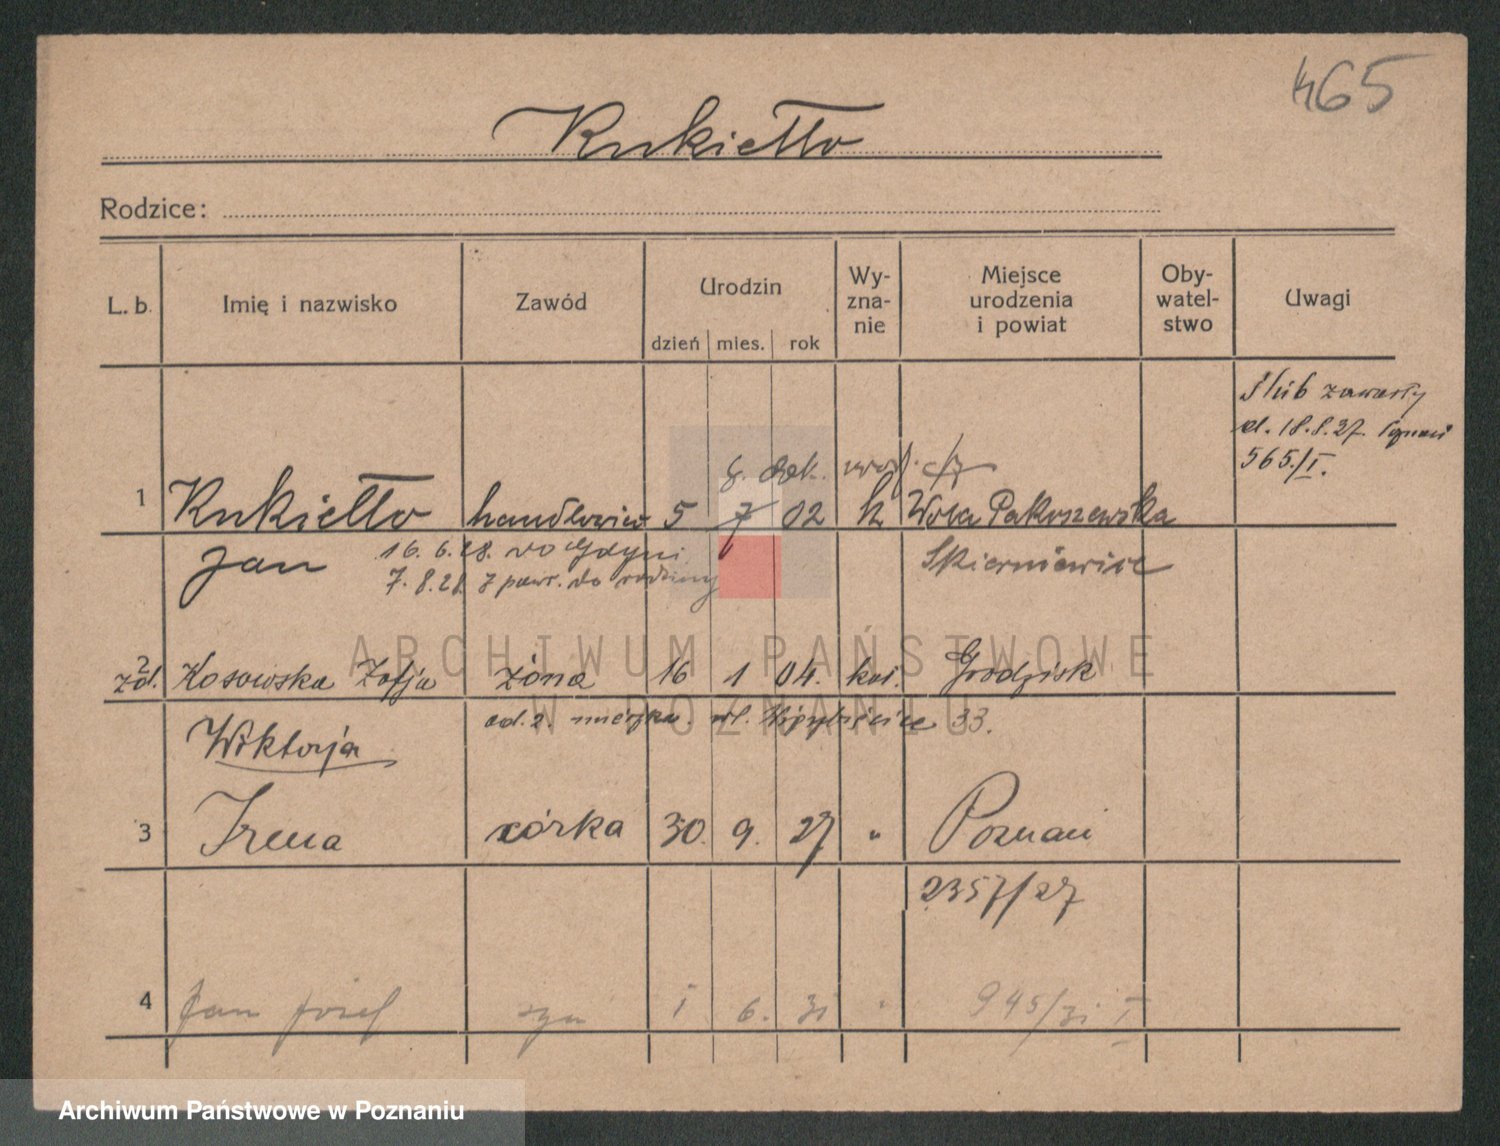 465
Kukiełło
Rodzice:
L. b. Imię i nazwisko Zawód Urodzin dzień mies. rok Wy-zna-nie Miejsce urodzenia i powiat Oby-watel-stwo Uwagi
Ślub zawarły
d. 18.8.27. Poznań
565./I.
1 Kukiełło handlowiec 5 7 02 k Wola Pakoszewska
Jan 16. 6. 28. do Gdyni Skierniewice
7. 8. 28. z pow. do rodziny
2 żd. Kosowska Zofja żona 16 1 04. kat. Grodzisk
Wiktorja od. 2. 33.
3 Irena córka 30. 9. 27 " Poznań
2357/27
4 Jan Józef syn 1 6. 31 " 945/31 I
ARCHIWUM PAŃSTWOWE
W POZNANIU
Archiwum Państwowe w Poznaniu